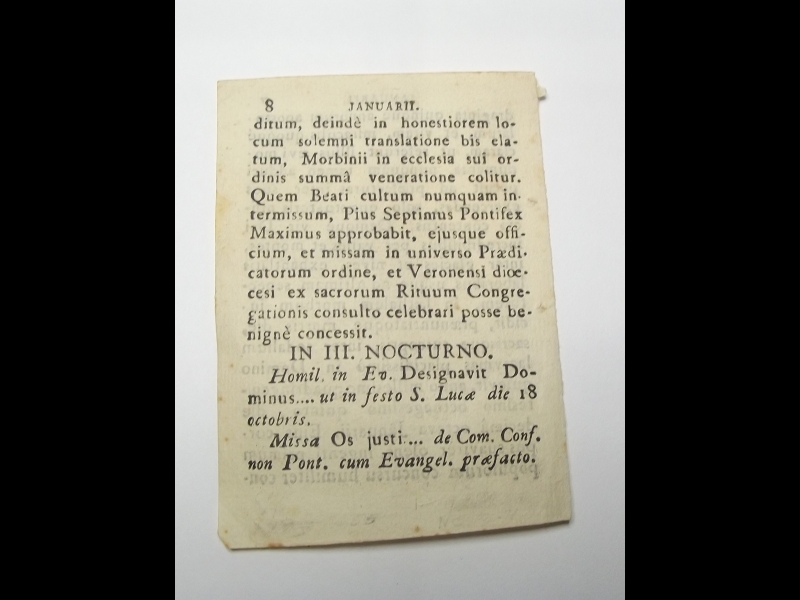 8 JANUARII.
ditum, deindè in honestiorem lo-
cum solemni translatione bis ela-
tum, Morbinii in ecclesia sui or-
dinis summâ veneratione colitur.
Quem Beati cultum numquam in-
termissum, Pius Septimus Pontifex
Maximus approbabit, ejusque offi-
cium, et missam in universo Prædi-
catorum ordine, et Veronensi diœ-
cesi ex sacrorum Rituum Congre-
gationis consulto celebrari posse be-
nignè concessit.
IN III. NOCTURNO.
Homil. in Ev. Designavit Do-
minus.... ut in festo S. Lucæ die 18
octobris.
Missa Os justi.... de Com. Conf.
non Pont. cum Evangel. præfacto.